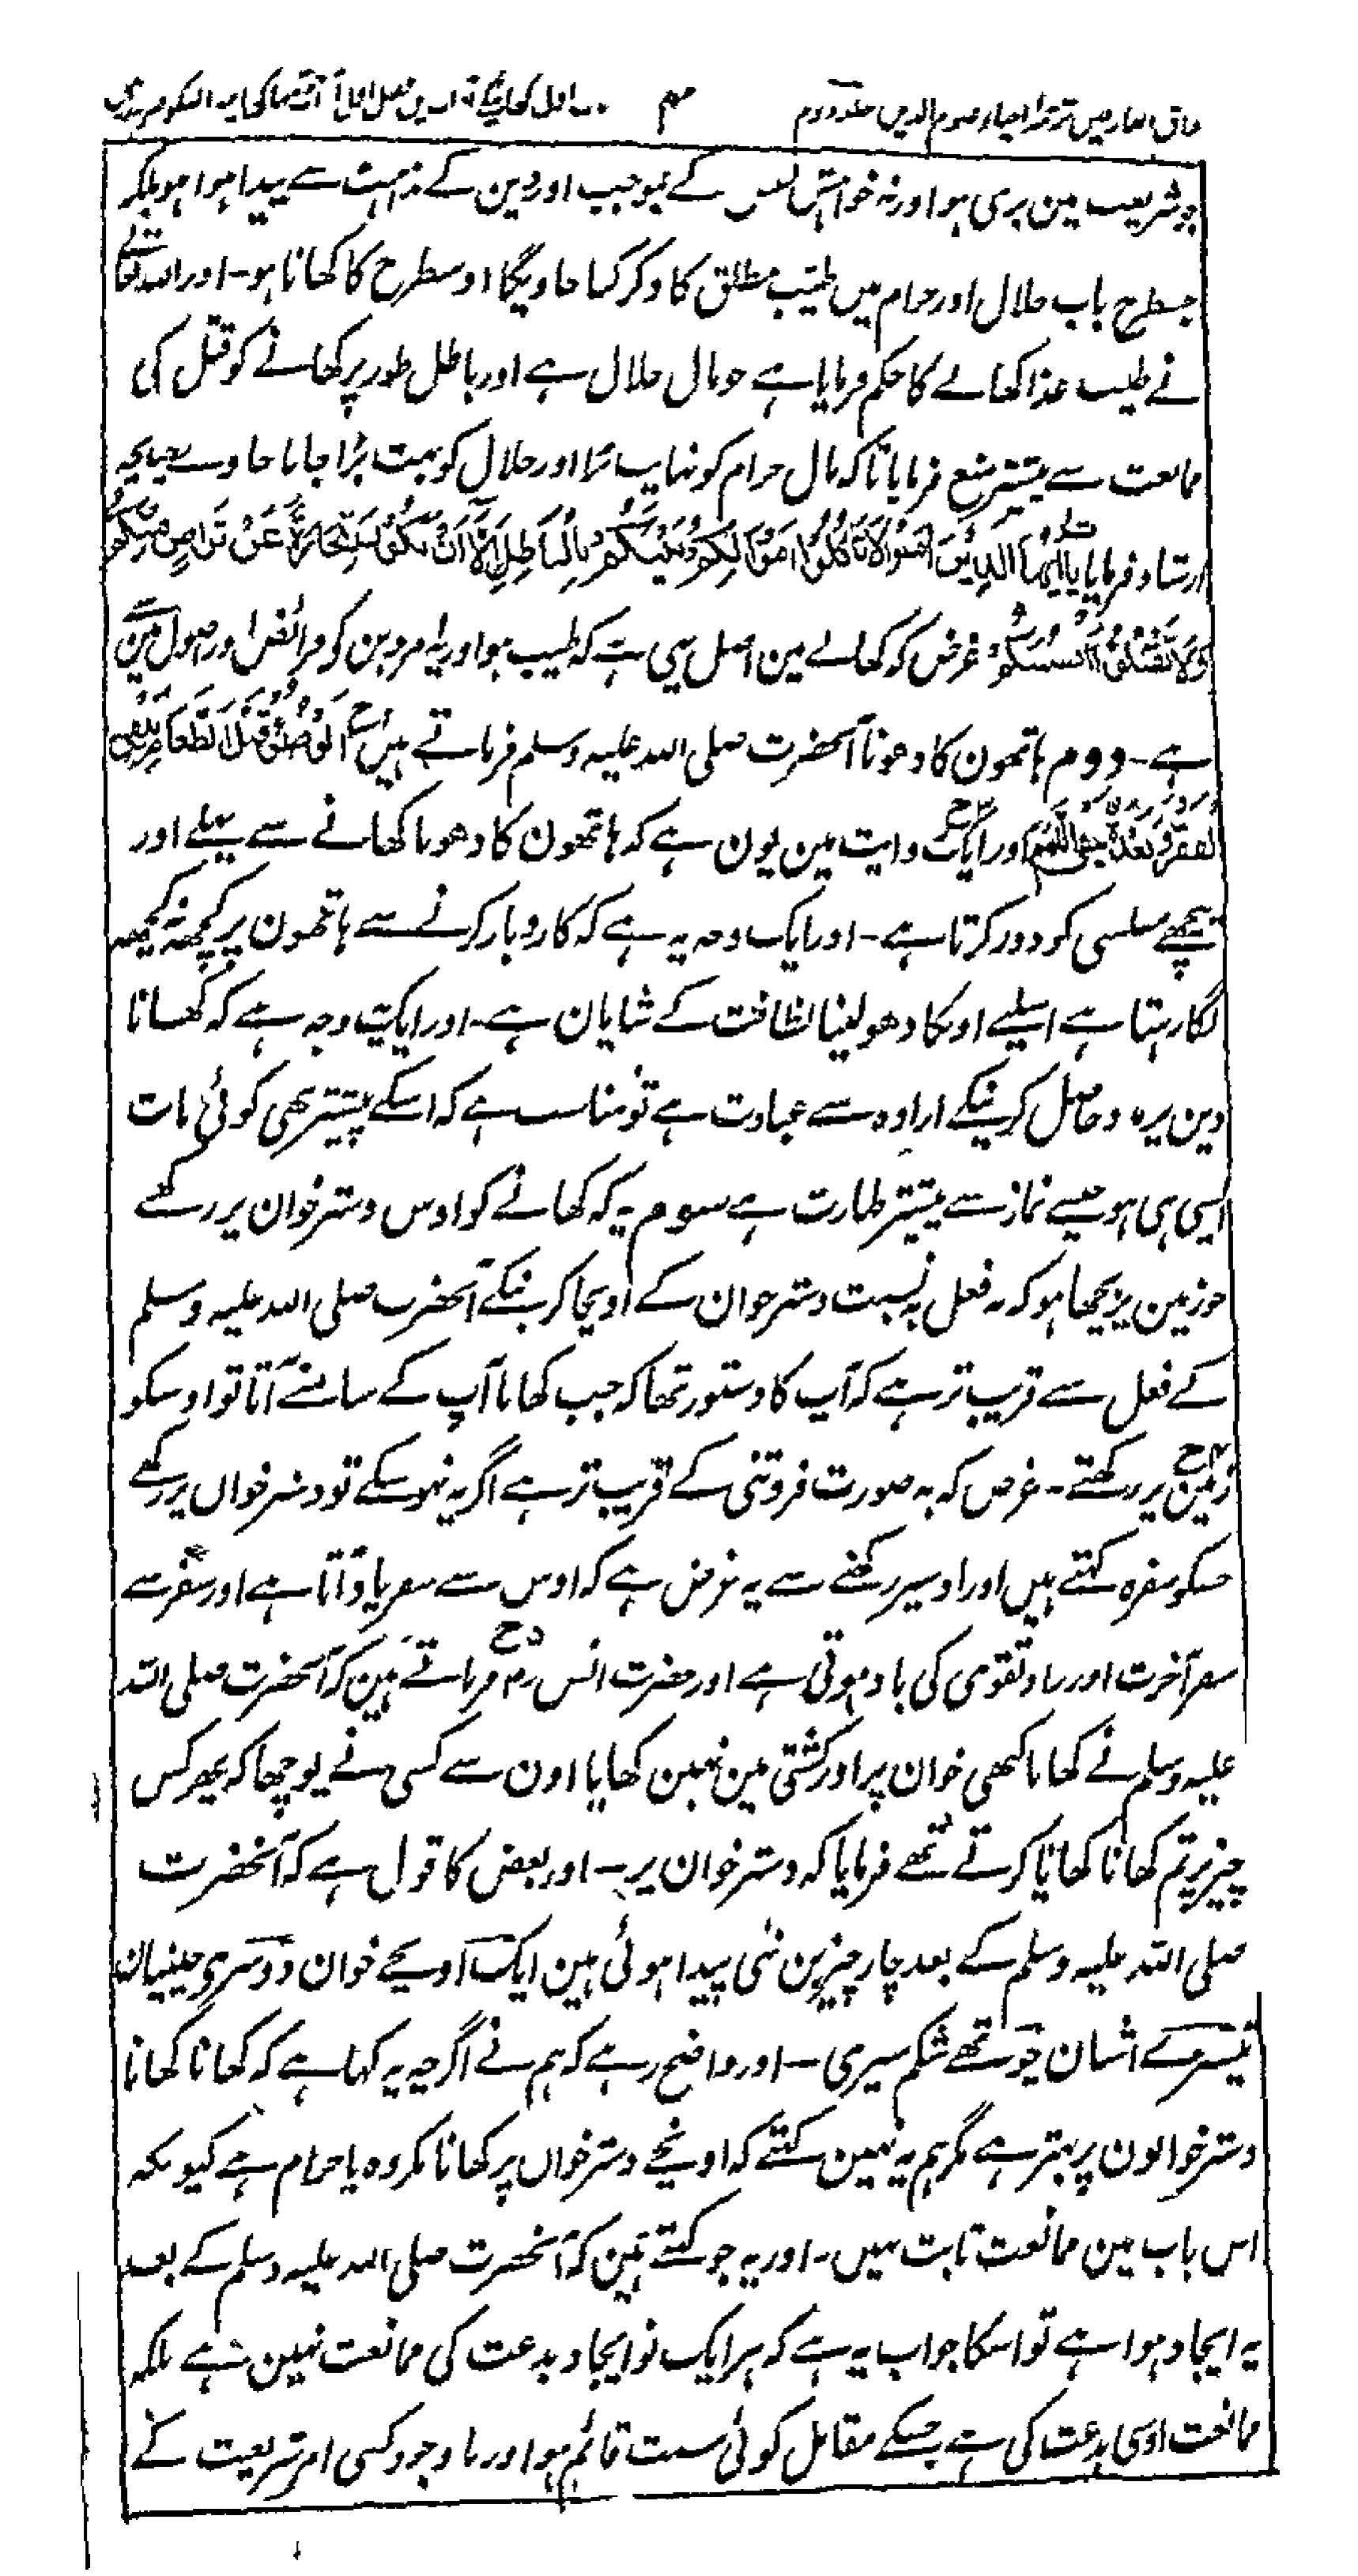 مذاق العارفین ترجمہ احیاء علوم الدین جلد دوم ۴ باب اول کھانیکے آداب میں فصل اول
جو شریعت مین بری ہو اور نہ خواہش نفس کے بموجب اور دین کے مداہنت سے پیدا ہوا ہو بلکہ
جسطرح باب حلال اور حرام میں طیب مطلق کا ذکر کیا جاویگا اوسطرح کا کھانا ہو۔ اور اللہ تعالے
نے طیب غذا کھانے کا حکم فرمایا ہے جو مال حلال ہے اور باطل طور پر کھانے کو قتل کی
ممانعت سے پیشتر منع فرمایا تاکہ مال حرام کو نہایت برا اور حلال کو بہت بڑا جانا جاوے چنانچہ
ارشاد فرمایا یَااَیُّهَا الَّذِیْنَ اٰمَنُوْا لَا تَاْكُلُوْا اَمْوَالَكُمْ بَیْنَكُمْ بِالْبَاطِلِ اِلَّا اَنْ تَكُوْنَ تِجَارَةً عَنْ تَرَاضٍ مِّنْكُمْ
وَلَا تَقْتُلُوْا اَنْفُسَكُمْ غرض کہ کھانے مین اصل یہی ہے کہ طیب ہو اور یہ امر دین کو فرائض اور اصول مین سے
ہے۔ دوم ہاتھون کا دھونا آنحضرت صلی اللہ علیہ وسلم فرماتے ہیں اَلْوُضُوْءُ قَبْلَ الطَّعَامِ یَنْفِی
الْفَقْرَ وَبَعْدَهٗ یَنْفِی اللَّمَمَ اور ایک روایت مین یون ہے کہ ہاتھون کا دھونا کھانے سے پہلے اور
پیچھے مفلسی کو دور کرتا ہے۔ اور ایک وجہ یہ ہے کہ کاروبار کرنے سے ہاتھون پر کچھ نہ کچھ
لگا رہتا ہے اسلیے اونکا دھو لینا نظافت کے شایان ہے۔ اور ایک وجہ ہے کہ کھانا
دین پر مدد حاصل کرنیکے ارادہ سے عبادت ہے تو مناسب ہے کہ اسکے پیشتر بھی کوئی بات
ایسی ہی ہو جیسے نماز سے پیشتر طہارت ہے سوم یہ کہ کھانے کو اوس دسترخوان پر رکھے
جو زمین پر بچھا ہو کہ یہ فعل بہ نسبت دسترخوان کے اونچا کرنیکے آنحضرت صلی اللہ علیہ وسلم
کے فعل سے قریب تر ہے کہ آپ کا دستور تھا کہ جب کھانا آپ کے سامنے آتا تو اوسکو
زمین پر رکھتے۔ غرض کہ یہ صورت فروتنی کے قریب تر ہے اگر یہ نہوسکے تو دسترخوان پر رکھے
جسکو سفرہ کہتے ہیں اور اوسپر رکھنے سے یہ غرض ہے کہ اوس سے سفر یاد آتا ہے اور سفر سے
سفر آخرت اور زاد تقوی کی یاد ہوتی ہے اور حضرت انس رض فرماتے ہین کہ آنحضرت صلی اللہ
علیہ وسلم نے کھانا کبھی خوان پر اور کشتی مین نہین کھایا اون سے کسی نے پوچھا کہ پھر کس
چیز پر تم کھانا کھایا کرتے تھے فرمایا کہ دسترخوان پر۔ اور بعض کا قول ہے کہ آنحضرت
صلی اللہ علیہ وسلم کے بعد چار چیزین نئی پیدا ہوئی ہین ایک اونچے خوان دوسری چھلنیان
تیسرے اشنان چوتھے شکم سیری۔ اور واضح رہے کہ ہم نے اگرچہ یہ کہا ہے کہ کھانا کھانا
دسترخوانون پر بہتر ہے مگر ہم یہ نہین کہتے کہ اونچے دسترخوان پر کھانا مکروہ یا حرام ہے کیونکہ
اس باب مین ممانعت ثابت نہیں۔ اور یہ جو کہتے ہین کہ آنحضرت صلی اللہ علیہ وسلم کے بعد
یہ ایجاد ہوا ہے تو اسکا جواب یہ ہے کہ ہر ایک نو ایجاد بدعت کی ممانعت نہین ہے بلکہ
ممانعت اوسی بدعت کی ہے جسکے مقابل کوئی سنت قائم ہو اور باوجود کسی امر شریعت کے